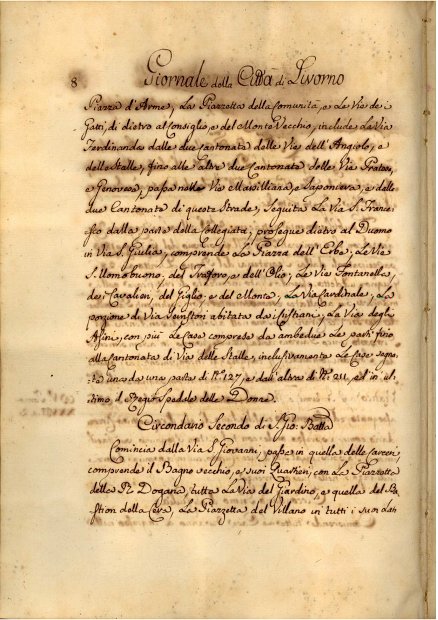 8 Giornale della Città di Livorno
Piazza d'Arme, La Piazzetta della Comunità, e Le Vie dei
Gatti, di dietro al Consiglio, e del Monte Vecchio, include La Via
Ferdinanda dalle due cantonate delle Vie dell'Angiolo, e
delle Stalle, fino alle altre due Cantonate delle Via
e Genovese; passa nelle Via Maisilliana, e Saponiera, e delle
due Cantonate di queste Strade, Seguita La Via S. France-
sco dalla parte della Collegiata; prosegue dietro al Duomo
in Via S. Giulia, comprende La Piazza dell'Erbe, Le Vie
S. Uomobuono, del Traforo, e dell'Olio, Le Vie Fontanella,
dei Cavalieri, del Giglio, e del Monte, La Via Cardinale, La
porzione di Via abitata da Cristiani, La Via degli
Asini, con più Le Case comprese da ambedue Le parti fino
alla Cantonata di Via delle Stalle, inclusivamente Le Case segna-
te una da una parte di N.° 127, e dall'altra di N.° 211, ed in ul-
timo il Regio Spedale delle Donne.
Circondario Secondo di S. Gio: Batta
Comincia dalla Via S. Giovanni, passa in quella delle Carceri,
comprende il Bagno vecchio, e suoi Quartieri, con La Piazzetta
della R. Dogana, tutta La Via del Giardino, e quella del Ba-
stion della Cera, La Piazzetta del Villano in tutti i suoi Lati